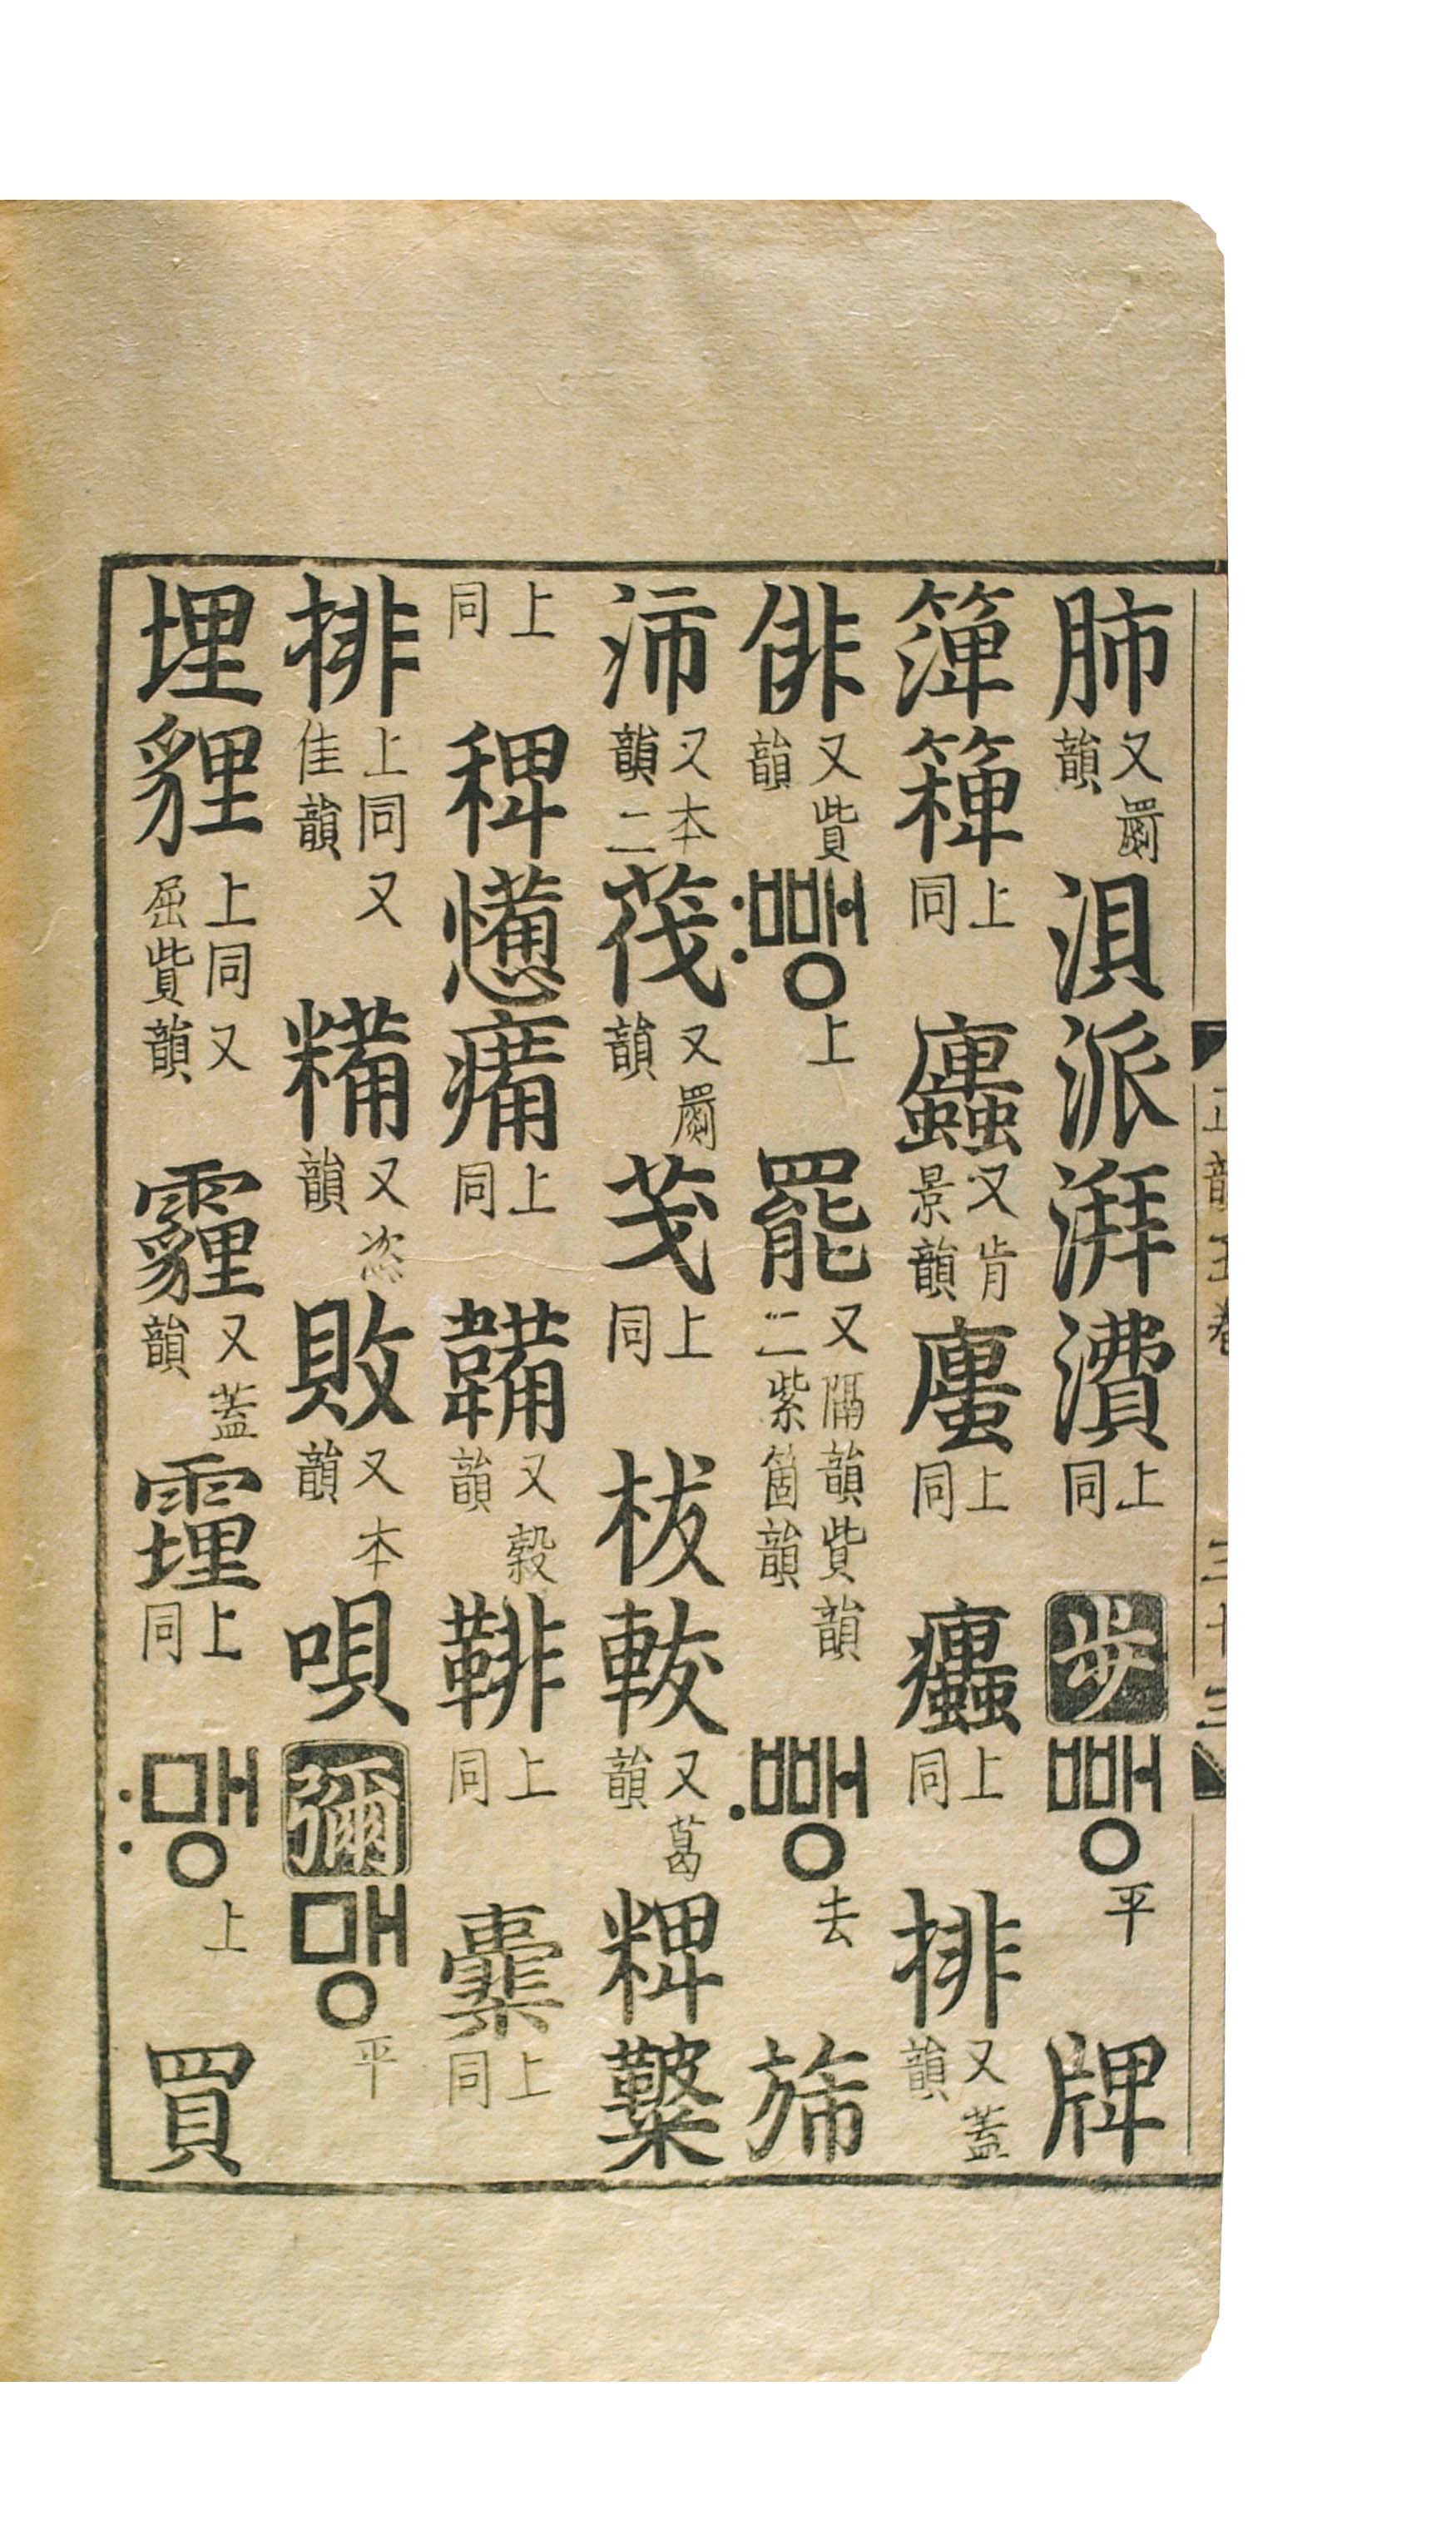 肺又罽韻浿派湃上同步뺑平牌
上同蠯又肯景韻上同上同排又蓋韻
俳又貲韻：뺑上罷又隔韻貲韻二紫箇韻·뺑去旆
沛又本韻二茷又罽韻上同柭軷又葛韻粺
上同稗憊上同韛又穀韻上同上同
排上同又佳韻糒又恣韻敗又本韻唄彌맹平
埋貍上同又屈貲韻霾又蓋韻上同：맹上買